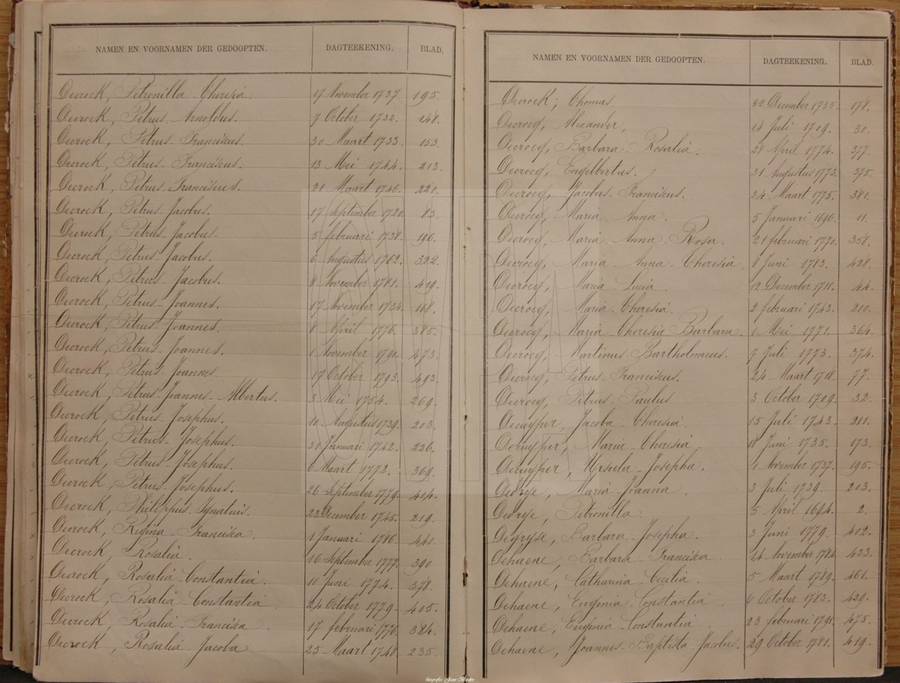 NAMEN EN VOORNAMEN DER GEDOOPTEN. DAGTEEKENING. BLAD.
Decrock, Petronilla Theresia 17 November 1737. 195.
Decrock, Petrus Arnoldus 9 October 1732. 148.
Decrock, Petrus Franciscus 30 Maart 1733. 153
Decrock, Petrus Franciscus. 13 Mei 1744. 213
Decrock, Petrus Franciscus. 21 Maart 1746. 221.
Decrock, Petrus Jacobus. 17 September 1720. 83.
Decrock, Petrus Jacobus. 5 februari 1738. 196.
Decrock, Petrus Jacobus. 6 Augustus 1762. 322
Decrock, Petrus Jacobus 8 November 1781. 419.
Decrock, Petrus Joannes. 17 November 1724. 118.
Decrock, Petrus Joannes. 8 April 1776. 385.
Decrock, Petrus Joannes. November 473.
Decrock, Petrus Joannes 19 October 1793. 493.
Decrock, Petrus Joannes Albertus. 5 Mei 1754. 269.
Decrock, Petrus Josephus. 10 Augustus 1739. 203.
Decrock, Petrus Josephus 30 Januari 1742. 226.
Decrock, Petrus Josephus. 6 Maart 1772. 369.
Decrock Petrus Josephus. 26 September 1779. 414.
Decrock, Philippus Ignatius. 22 December 1745. 219.
Decrock, Regina Francisca 1 Januari 1786. 441.
Decrock, Rosalia. 16 September 1777. 390.
Decrock, Rosalia Constantia. 11 Juni 1774. 378.
Decrock, Rosalia Constantia 24 October 1779. 405.
Decrock, Rosalia Francisca 17 februari 1776. 384.
Decrock, Rosalia Jacoba 25 Maart 1748. 235.
NAMEN EN VOORNAMEN DER GEDOOPTEN. DAGTEEKENING. BLAD.
Decrock, Thomas 22 December 178.
Decrocq, Alexander, 14 Juli 1709. 31.
Decrocq, Barbara Rosalia. 28 April 1774. 377.
Decrocq, Engelbertus. 31 Augustus 1773. 375.
Decrocq, Jacobus Franciscus. 24 Maart 1775. 381.
Decrocq, Maria Anna. 5 Januari 1696. 11.
Decrocq, Maria Anna Rosa. 21 februari 1770. 358.
Decrocq, Maria Anna Theresia 8 Juni 1783. 428.
Decrocq, Maria Lucia 12 December 1711. 44.
Decrocq, Maria Theresia. 2 februari 1743. 210.
Decrocq, Maria Theresia Barbara 1 Mei 1771. 364.
Decrocq, Martinus Bartholomeus. 9 Juli 1773. 374.
Decrocq, Petrus Franciscus. 24 Maart 77.
Decrocq, Petrus Paulus 3 October 1709. 32.
Decuyper, Jacoba Theresia. 15 Juli 1743. 211.
Decuyper, Maria Theresia 18 Juni 1735. 173.
Decuyper, Ursula Josepha. 1 November 1737. 195.
Maria Joanna. 3 Juli 1739. 213.
Petronilla. 5 April 1684. 2.
Degryse, Barbara Josepha 3 Juni 1779. 402.
Dehaene, Barbara Francisca 24 November 1784. 433.
Dehaene, Catharina Cecilia. 5 Maart 1789. 461.
Dehaene, Eugenia Constantia 6 October 1783. 429.
Dehaene, Eugenia Constantia. 23 februari 1791. 475.
Dehaene, Joannes Baptista Jacobus. 29 October 1781. 419.